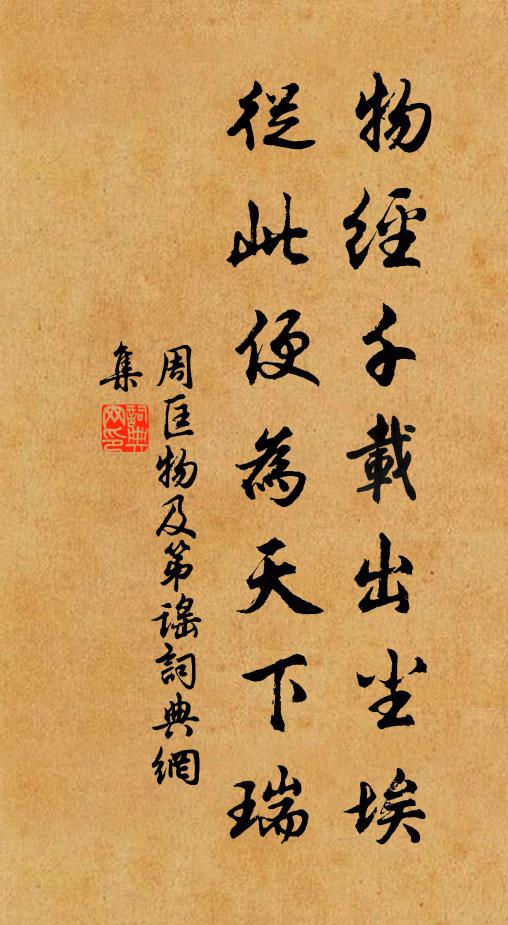 物經千載出尘埃
從此便為天下瑞
周匡物及第謠詞典網
集
詞典
网印